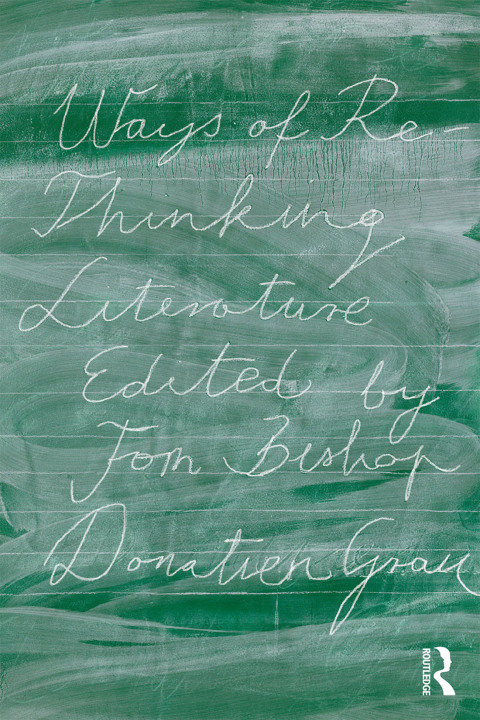 Ways of Re-
Thinking
Literature
Edited by
Tom Bishop
Donatien Grau
ROUTLEDGE